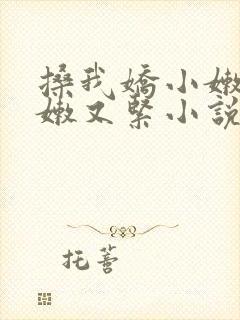 搡我嬌小嫩
嫩又緊小說
托薝